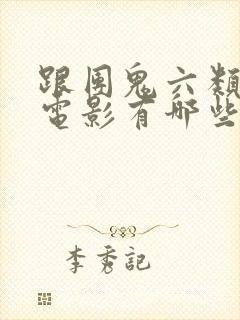 跟團鬼六類似的
電影有哪些
李秀記